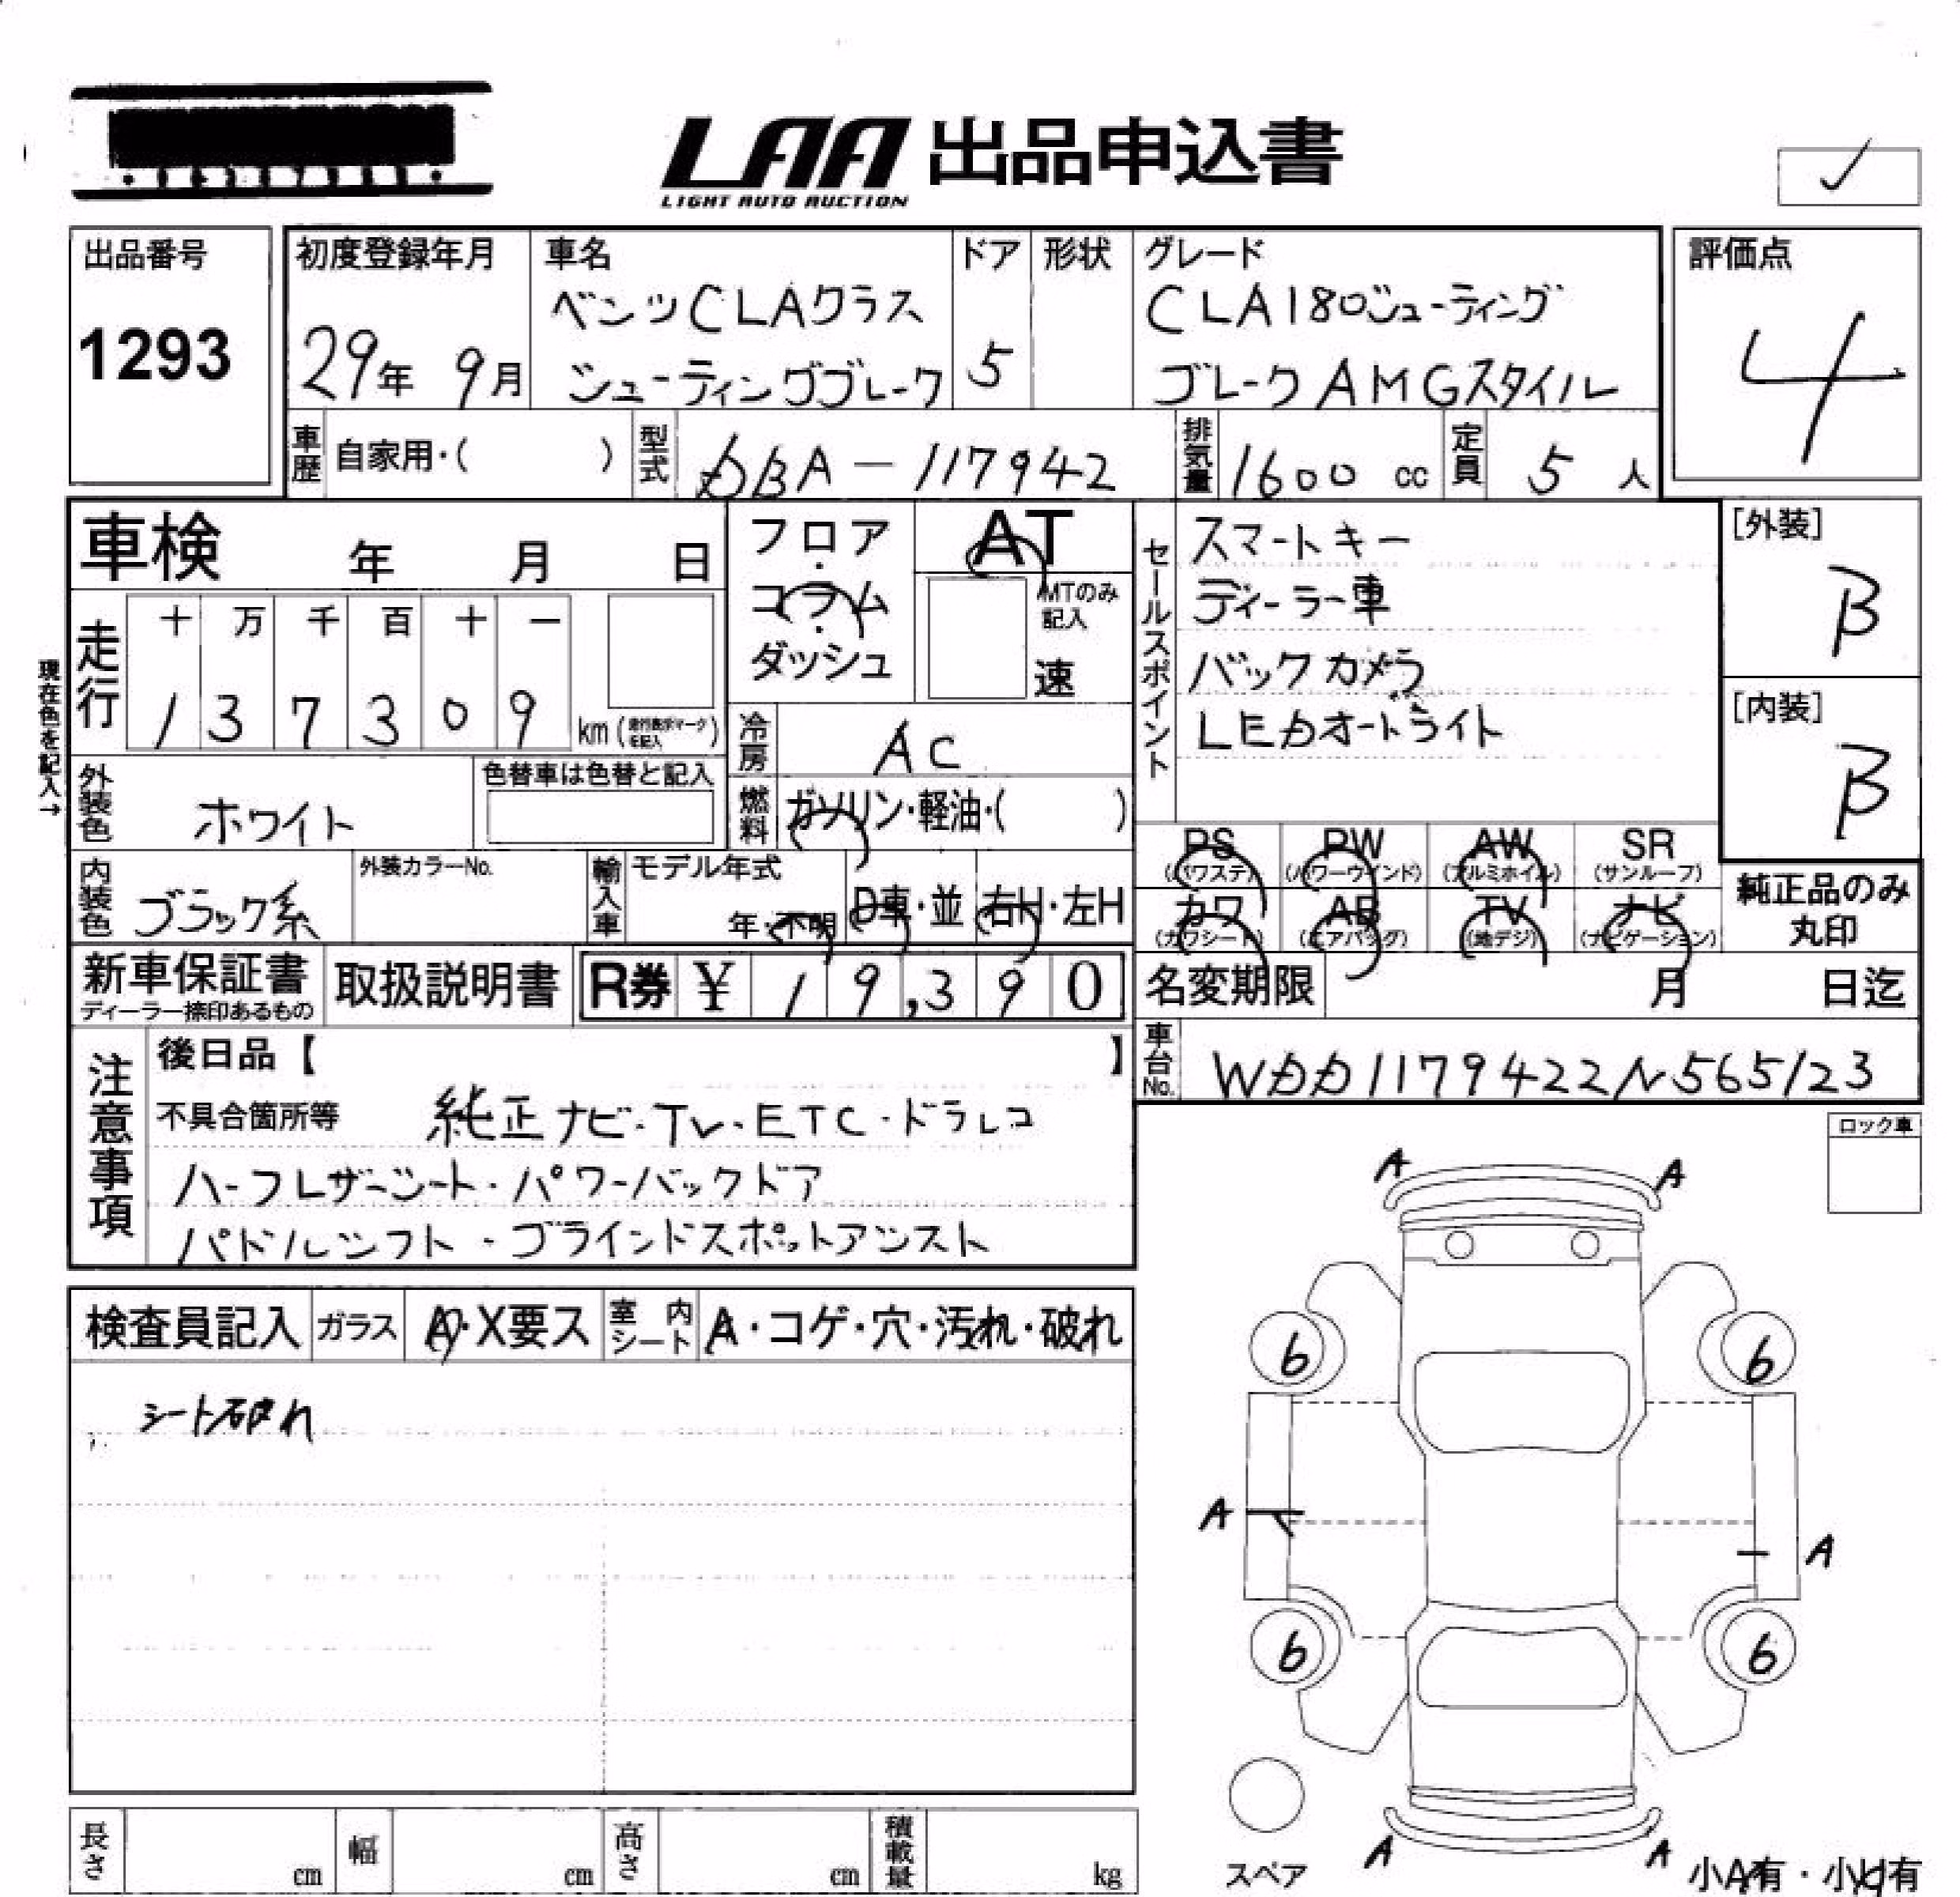 LAA 出品申込書
LIGHT AUTO AUCTION
✓
出品番号
1293
初度登録年月
29年 9月
車名
ベンツCLAクラス
シューティングブレーク
ドア
5
形状
グレード
CLA180シューティング
ブレークAMGスタイル
評価点
4
車歴 自家用・( )
型式 DBA-117942
排気量 1600 cc
定員 5 人
車検 年 月 日
フロア・コラム・ダッシュ
AT
MTのみ記入
速
セールスポイント
スマートキー
ディーラー車
バックカメラ
LEDオートライト
[外装]
B
[内装]
B
現在色を記入→
走行
十 万 千 百 十 一
1 3 7 3 0 9 km
冷房 AC
外装色 ホワイト
色替車は色替と記入
燃料 ガソリン・軽油・( )
PS (パワステ)
PW (パワーウインド)
AW (アルミホイル)
SR (サンルーフ)
カワ (カワシート)
AB (エアバッグ)
TV (地デジ)
ナビ (ナビゲーション)
純正品のみ
丸印
内装色 ブラック系
外装カラーNo.
輸入車 モデル年式
年・不明
D車・並
右H・左H
新車保証書
ディーラー捺印あるもの
取扱説明書
R券 ¥ 19,390
名変期限 月 日迄
車台No. WDD1179422N565123
注意事項
後日品【 】
不具合箇所等 純正ナビ・TV・ETC・ドラレコ
ハーフレザーシート・パワーバックドア
パドルシフト・ブラインドスポットアシスト
ロック車
検査員記入
ガラス A・X要ス
室内シート A・コゲ・穴・汚れ・破れ
シート破れ
A A
6 6
A A
6 6
A A
スペア
小A有・小U有
長さ cm
幅 cm
高さ cm
積載量 kg